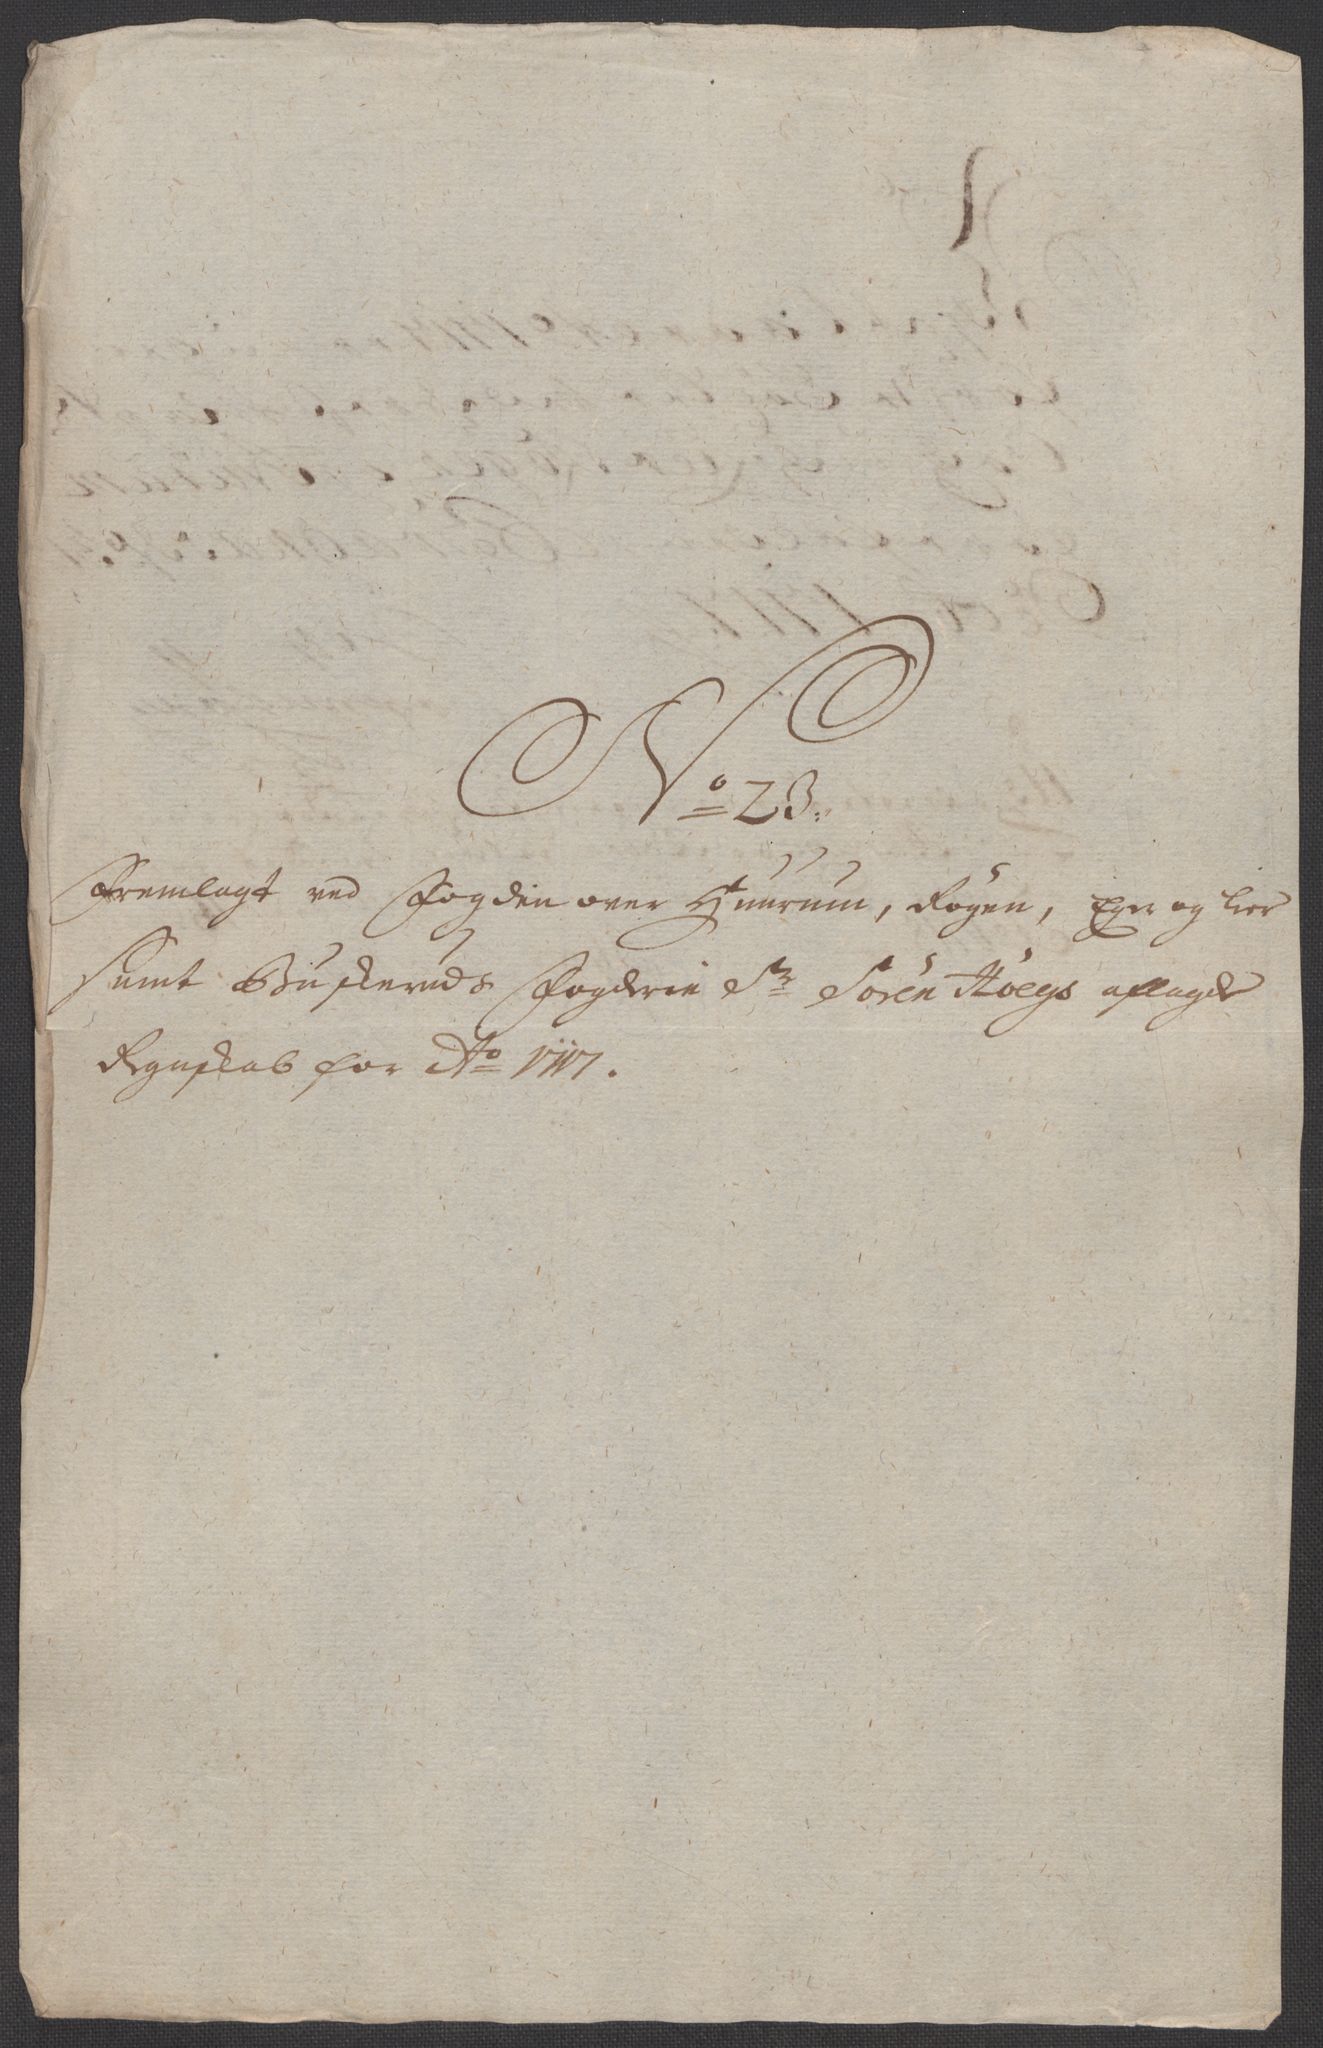 No 23.
Fremlagt ved Fogden over Huurum, Röyen, Eger og Lier
samt Buskeruds Fogderie Sr Sören Höegs aflagde
Regnskab for Ao 1717.